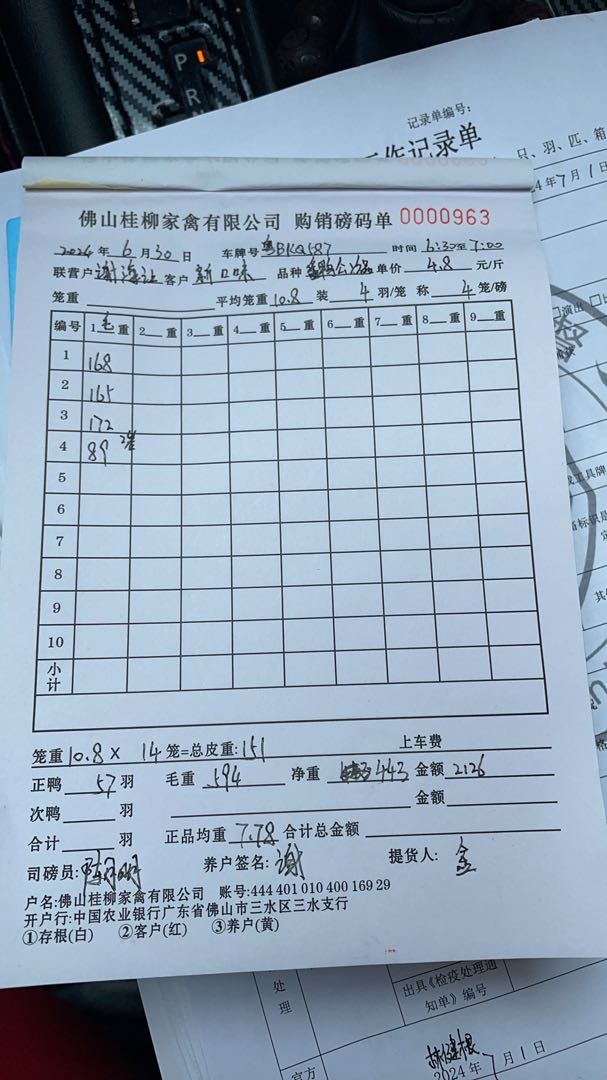 P
R
记录单编号:
工作记录单
只、羽、匹、箱
24年7月1日
佛山桂柳家禽有限公司 购销磅码单 0000963
2024年6月30日 车牌号粤BKQ587 时间6:30至7:00
联营户谢 客户新口味 品种 单价4.8元/斤
笼重 平均笼重10.8 装4羽/笼 称4笼/磅
编号 1毛重 2重 3重 4重 5重 6重 7重 8重 9重
1 168
2 165
3 172
4 89 2笼
5
6
7
8
9
10
小计
笼重10.8×14笼=总皮重:151 上车费
正鸭57羽 毛重594 净重443 金额2126
次鸭羽 金额
合计羽 正品均重7.78 合计总金额
司磅员: 养户签名:谢 提货人:金
户名:佛山桂柳家禽有限公司 账号:444 401 010 400 169 29
开户行:中国农业银行广东省佛山市三水区三水支行
①存根(白) ②客户(红) ③养户(黄)
处理
出具《检疫处理通知单》编号
林健根
2024年7月1日
官方